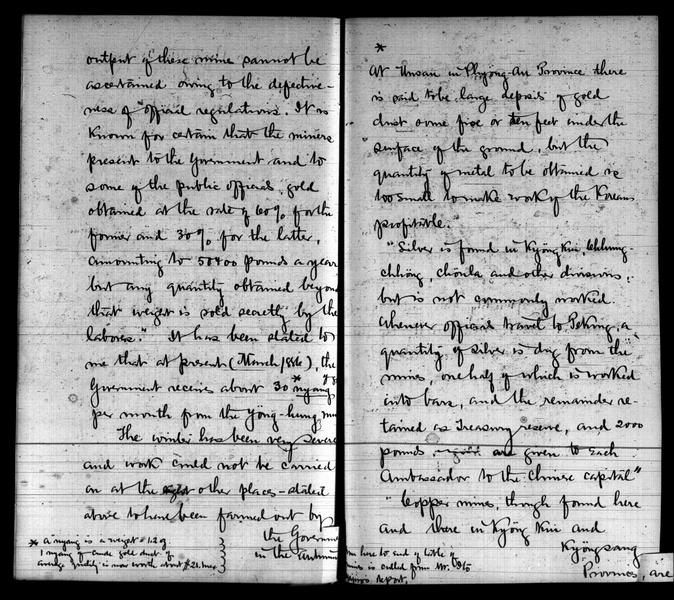 output of these mine cannot be
ascertained owing to the defective-
ness of "official regulations. It is
known for certain that the miners
present to the Government and to
some of the public officials, gold
obtained at the rate of 60% for the
former and 30% for the latter,
amounting to 50400 pounds a year
but any quantity obtained beyon
that weight is sold secretly by the
laborers." It has been stated to
me that at present (March 1886), the
Government receives about 30 *nyang
per month from the Yöng-heung
The winter has been very severe
and work could not be carried
on at the other places - stated
above to have been farmed out by
the Governm
in the autumn
* A nyang is a weight of
1 nyang of crude gold dust of
average quality is now worth about $21.
*
At Unsan in Phyöng-An Province there
is said to be large deposits of gold
dust some five or ten feet under the
surface of the ground, but the
quantity of metal to be obtained is
too small to make work of the Koreans
profitable.
"Silver is found in Kyöng Kui, Chhung-
chhöng, Chöula and other divisions,
but is not commonly worked.
Whenever officials travel to Peking, a
quantity of silver is dug from the
mines, one half of which is worked
into bars, and the remainder re-
tained as Treasury reserve, and 2000
pounds are given to each
Ambassador to the Chinese capital"
"Copper mines, though found here
and there in Kyöng Kui and
Kyöngsang
Provinces, are
here to end of title of
mines is culled from Mr.
report.